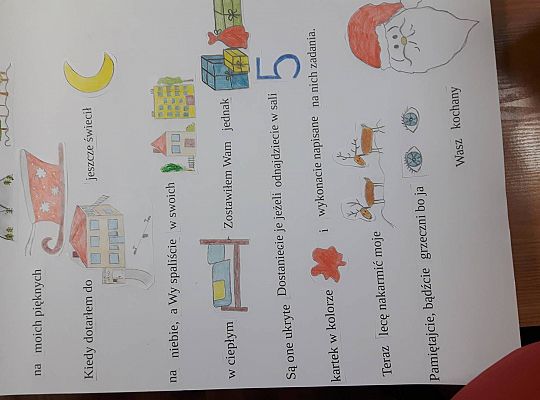 na moich pięknych
Kiedy dotarłem do jeszcze świecił
na niebie, a Wy spaliście w swoich
w ciepłym Zostawiłem Wam jednak
Są one ukryte Dostaniecie je jeżeli odnajdziecie w sali 5
kartek w kolorze i wykonacie napisane na nich zadania.
Teraz lecę nakarmić moje
Pamiętajcie, bądźcie grzeczni bo ja
Wasz kochany